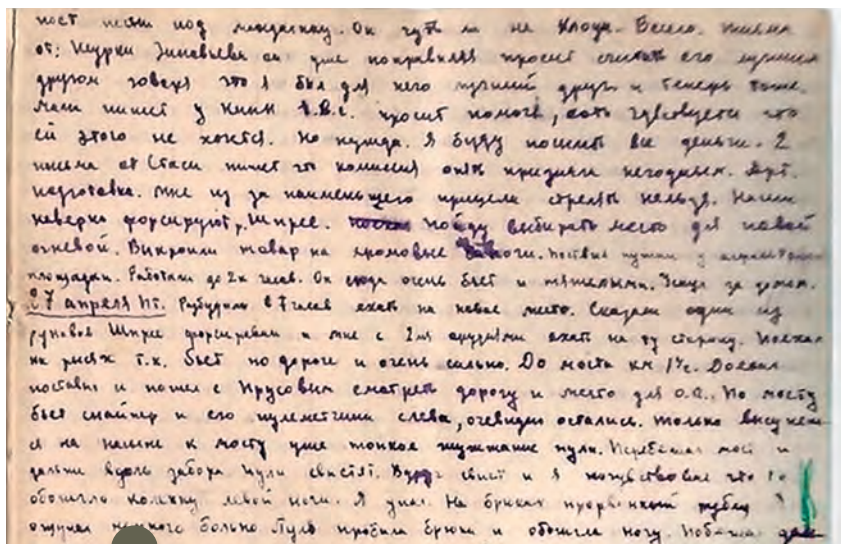 пост пехти под мандаскиу. Он чуть ли не Клоун. Всего. письма
от: Шурки Зиновьева он уже поправился просит считать его лучшим
другом говоря что я был для него лучший друг и теперь тоже.
Мама пишет у Нины А.В.С. просит помочь, хоть чувствуется что
ей этого не хочется. Но нужда. Я буду посылать все деньги. 2
письма от Стаси пишет что комиссия опять признала негодным. Арт.
подготовка. Мне из за наименьшего прицела стрелять нельзя. Наши
наверно форсируют р. Шпрее. пойду выбирать место для новой
огневой. Выкроили товар на хромовые сапоги. Поставил пушки у
площадки. Работали до 2х часов. Он сюда очень бьет и тяжелыми. за домом.
27 апреля Пт. Разбудили в 7 часов ехать на новое место. Сказали один из
рукавов Шпрее форсировали и мне с 2мя орудиями ехать на ту сторону. Поехал
на рысях т.к. бьет по дороге и очень сильно. До моста км 1½. Доехал
поставил и пошел с Прусовым смотреть дорогу и место для О.П. По мосту
бьет снайпер и его пулеметчики слева, очевидно остались. только высунем
ся на насыпь к мосту уже тонкое жужжание пули. Перебежал мост и
дальше вдоль забора пули свистят. Вдруг свист и я почувствовал что
обожгло коленку левой ноги. Я упал. На брюках прорванный рубец
ощущал немного больно Пуля пробила брюки и обожгла ногу. Побежал